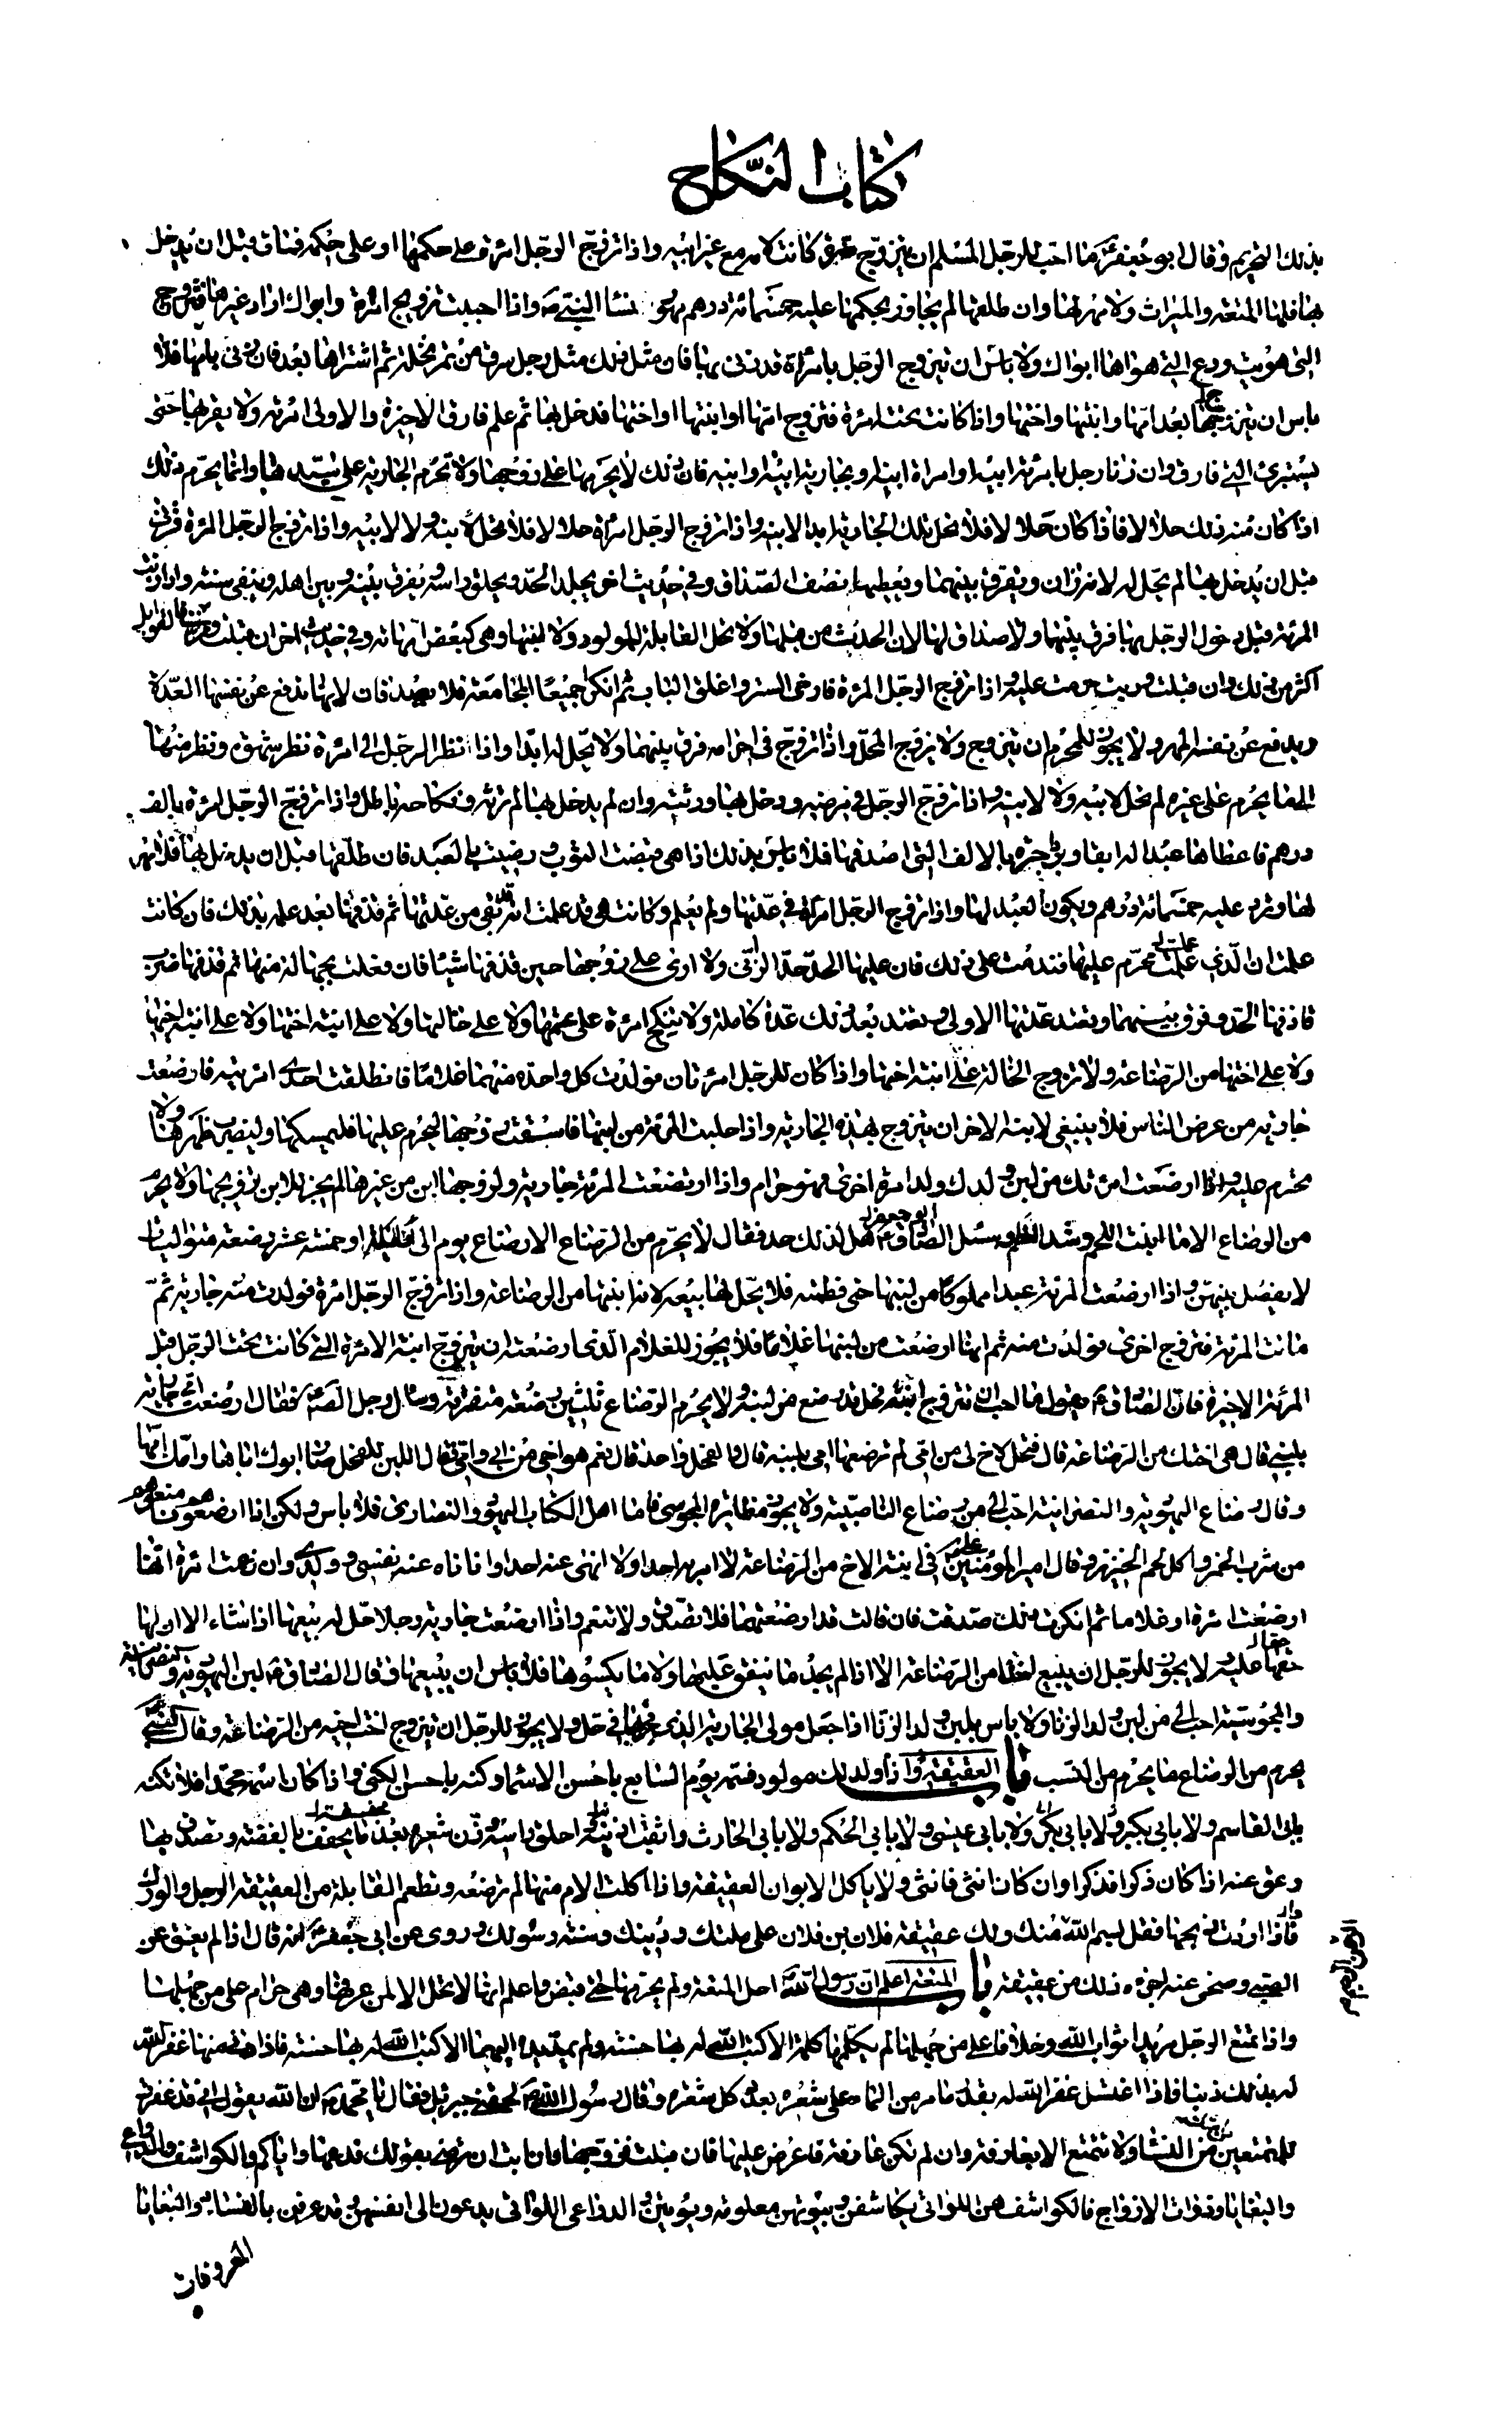 كتاب النكاح
بذلك التحريم وقال ابو جعفر ع ما احب للرجل المسلم ان يتزوج ضرة كانت لامه مع غير ابيه واذا تزوج الرجل امرئة على حكمها او على حكمه فمات قبل ان يدخل
بها فلها المتعة والميراث ولا مهر لها وان طلقها لم يجاوز بحكمها عليه خمسمائة درهم مهور نساء النبي ص واذا احببت تزويج امرئة وابواك ارادا غيرها فتزوج
التي هويت ودع التي هواها ابواك ولا باس ان يتزوج الرجل بامرئة قد زنى بها فان مثل ذلك مثل رجل سرق من تمر نخلة ثم اشتراها بعد فان زنى بامها فلا
باس ان يتزوجها بعد امها وابنتها واختها واذا كانت تحته امرئة فتزوج امها او ابنتها او اختها فدخل بها ثم علم فارق الاخيرة والاولى امرئته ولا يقربها حتى
يستبرئ التي فارق وان زنا رجل بامرئة ابيه او امراة ابنه او بجارية ابيه او ابنه فان ذلك لا يحرمها على زوجها ولا تحرم الجارية على سيدها وانما يحرم ذلك
اذا كان منه ذلك حلالا فاذا كان حلالا فلا تحل تلك الجارية ابدا لابنه واذا تزوج الرجل امرئة حلالا فلا تحل لابنه ولا لابيه واذا تزوج الرجل المرئة فزنى
قبل ان يدخل بها لم تحل له لانه زان ويفرق بينهما ويعطيها نصف الصداق وفي حديث اخر يجلد الحد ويحلق راسه ويفرق بينه وبين اهله وينفى سنة واذا زنت
المرئة قبل دخول الرجل بها فرق بينهما ولا صداق لها لان الحدث من قبلها ولا تحل القابلة للمولود ولا ابنتها وهي كبعض امهاته وفي حديث اخر ان قبلت ومرت فالقوابل
اكثر من ذلك وان قبلت وربت حرمت عليه واذا تزوج الرجل المرئة فارخى الستر واغلق الباب ثم انكرا جميعا المجامعة فلا يصدقان لانها تدفع عن نفسها العدة
ويدفع عن نفسه المهر ولا يجوز للمحرم ان يتزوج ولا يزوج المحل واذا تزوج في احرامه فرق بينهما ولا تحل له ابدا واذا نظر الرجل الى امرئة نظر شهوة ونظر منها
الى ما يحرم على غيره لم تحل لابيه ولا لابنه واذا تزوج الرجل في مرضه ودخل بها ورثته وان لم يدخل بها لم ترثه ونكاحه باطل واذا تزوج الرجل امرئة بالف
درهم فاعطاها عبدا له ابقا وبرد حبرة بالالف التي اصدقها فلا باس بذلك اذا هي قبضت الثوب ورضيت بالعبد فان طلقها قبل ان يدخل بها فلا مهر
لها وترد عليه خمسمائة درهم ويكون العبد لها واذا تزوج الرجل امراة في عدتها ولم يعلم وكانت هي قد علمت انه بقي من عدتها ثم قذفها بعد علمه بذلك فان كانت
علمت ان الذي عملت محرم عليها فقدمت على ذلك فان عليها الحد حد الزاني ولا ارى على زوجها حين قذفها شيئا فان فعلت بجهالة منها ثم قذفها ضرب
قاذفها الحد وفرق بينهما وتعتد عدتها الاولى وتعتد بعد ذلك عدة كاملة ولا ينكح امرئة على عمتها ولا على خالتها ولا على ابنة اختها ولا على ابنة اخيها
ولا على اختها من الرضاعة ولا تزوج الخالة على ابنة اختها واذا كان للرجل امرئتان فولدت كل واحدة منهما غلاما فانطلقت احدى امرئتيه فارضعت
جارية من عرض الناس فلا ينبغي لابنه الاخر ان يتزوج بهذه الجارية واذا حلبت المرئة من لبنها فاسقت زوجها ليحرم عليها فليمسكها وليضرب ظهرها ولا
تحرم عليه واذا ارضعت امرئتك من لبن ولدك ولد امرئة اخرى فهو حرام واذا ارضعت المرئة جارية ولزوجها ابن من غيرها لم يجز للابن تزويجها ولا يحرم
من الرضاع الا ما انبت اللحم وشد العظم وسئل الصادق ع هل لذلك حد فقال لا يحرم من الرضاع الا رضاع يوم الى ليلة او خمسة عشر رضعة متواليات
لا يفصل بينهن واذا ارضعت المرئة عبدا مملوكا من لبنها حتى فطمته فلا يحل لها بيعه لانه ابنها من الرضاعة واذا تزوج الرجل امرئة فولدت منه جارية ثم
ماتت المرئة فتزوج اخرى فولدت منه ثم انها ارضعت من لبنها غلاما فلا يجوز للغلام الذي ارضعته ان يتزوج ابنة الامرئة التي كانت تحت الرجل قبل
المرئة الاخيرة فان الصادق ع يقول ما احب ان تتزوج ابنة فحل قد رضع من لبنه ولا يحرم الرضاع ثلثين رضعة متفرقة وسال رجل الصادق ع فقال ارضعت امي جارية
بلبني قال هي اختك من الرضاعة قال فتحل لاخ لي من امي لم ترضعها امي بلبنه قال فالفحل واحد قال نعم هو اخي من ابي وامي فقال اللبن للفحل صار ابوك اباها وامك امها
وقال رضاع اليهودية والنصرانية احب الي من رضاع الناصبية ولا يجوز مظائرة المجوسي فاما اهل الكتاب اليهود والنصارى فلا باس ولكن اذا ارضعوهم منعوهم
من شرب الخمر واكل لحم الخنزير وقال امير المؤمنين ع في ابنة الاخ من الرضاعة لا امر به احدا ولا انهى عنه احدا وانا ناه عنه نفسي وولدي وان زعمت امرئة انها
ارضعت امرئة او غلاما ثم انكرت ذلك صدقت فان قالت قد ارضعتهما فلا تصدق ولا تنعم واذا ارضعت جارية رجلا حل له بيعها اذا شاء الا ان لها
حقها عليه ولا يجوز للرجل ان يبيع اخته من الرضاعة الا اذا لم يجد ما ينفق عليها ولا ما يكسوها فلا باس ان يبيعها وقال الصادق ع لبن اليهودية والنصرانية
والمجوسية احب الي من لبن ولد الزنا ولا باس بلبن ولد الزنا اذا جعل مولى الجارية الذي فجر بها في حل ولا يجوز للرجل ان يتزوج اخت اخيه من الرضاعة وقال النبي
يحرم من الرضاع ما يحرم من النسب باب العقيقة واذا ولد لك مولود فسمه يوم السابع باحسن الاسماء وكنه باحسن الكنى واذا كان اسمه محمدا فلا تكنه
بابي القاسم ولا بابي بكير ولا بابي بكر ولا بابي عيسى ولا بابي الحكم ولا بابي الحارث واثقب اذنيه احلق راسه وزن شعره بعد ما يجفف بالفضة وتصدق بها
وعق عنه اذا كان ذكرا فذكرا وان كان انثى فانثى ولا ياكل الابوان العقيقة واذا اكلت الام منها لم ترضعه وتطعم القابلة من العقيقة الرجل والورك
فاذا اردت ذبحها فقل بسم الله منك ولك عقيقة فلان بن فلان على ملتك ودينك وسنة رسولك وروى عن ابي جعفر ع انه قال اذا لم يعق عن
الصبي وضحى عنه اجزءه ذلك من عقيقته باب المتعة اعلم ان رسول الله احل المتعة ولم يحرمها حتى قبض واعلم انها لا تحل الا لمن عرفها وهي حرام على من جهلها
واذا تمتع الرجل مريدا ثواب الله وخلافا على من جهلها لم يكلمها كلمة الا كتب الله له بها حسنة ولم يمد يده اليها الا كتب الله له بها حسنة فاذا دنى منها غفر الله
له بذلك ذنبا فاذا اغتسل غفر الله له بقدر ما مر من الماء على شعره بعدد كل شعرة وقال رسول الله ص لحقني جبرئيل فقال يا محمد ان الله يقول اني قد غفرت
للمتمتعين من النساء ولا تتمتع الا بعارفة وان لم تكن عارفة فاعرض عليها فان قبلت فتزوجها وان ابت ان ترضى بقولك فدعها واياكم والكواشف والدواعي
والبغايا وذوات الازواج فالكواشف هن اللواتي يكاشفن وبيوتهن معلومة ويؤتين والدواعي اللواتي يدعون الى انفسهن قد عرفن بالفساد والبغايا
المعروفات